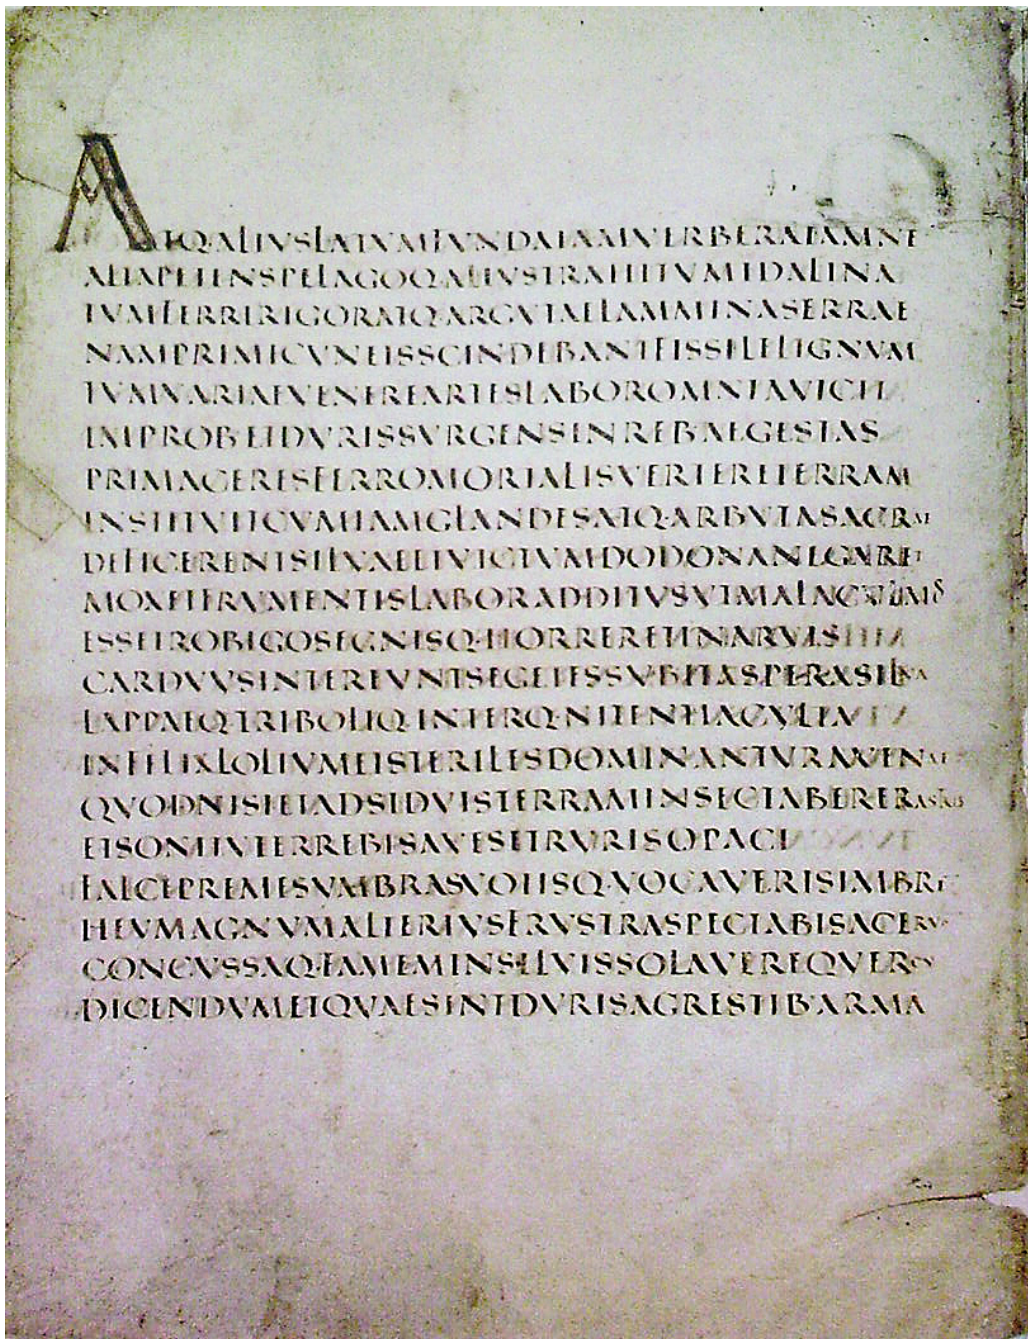 ATQ·ALIVSLATVMFVNDAIAMVERBERATAMNE
ALTAPETENSPELAGOQ·ALIVSTRAHITVMIDALINA
TVMFERRIRIGORATQ·ARGVTAELAMMINASERRAE
NAMPRIMICVNEISSCINDEBANTFISSILELIGNVM
TVMVARIAEVENEREARTESLABOROMNIAVICIT
IMPROB·ETDVRISSVRGENSINREB·AEGESTAS
PRIMACERESFERROMORTALISVERTERETERRAM
INSTITVITCVMIAMGLANDESATQ·ARBVTASACRAE
DEFICERENTSILVAEETVICTVMDODONANEGARET
MOXETFRVMENTISLABORADDITVSVTMALACVLMOS
ESSETROBIGOSEGNISQ·HORRERETINARVIS
CARDVVSINTEREVNTSEGETESSVBITASPERASILVA
LAPPAEQ·TRIBOLIQ·INTERQ·NITENTIACVLTA
INFELIXLOLIVMETSTERILESDOMINANTVRAVENAE
QVODNISIETADSIDVISTERRAMINSECTABERERASTRIS
ETSONITVTERREBISAVESETRVRISOPACI
FALCEPREMESVMBRASVOTISQ·VOCAVERISIMBRE
HEVMAGNVMALTERIVSFRVSTRASPECTABISACERV·
CONCVSSAQ·FAMEMINSILVISSOLAVEREQVERCV
DICENDVMETQVAESINTDVRISAGRESTIB·ARMA